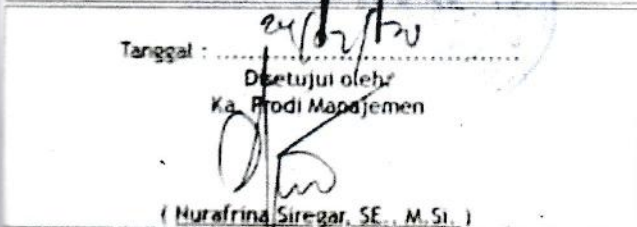 Tanggal : 24/02/20
Disetujui oleh:
Ka. Prodi Manajemen
( Nurafrina Siregar, SE., M.Si. )